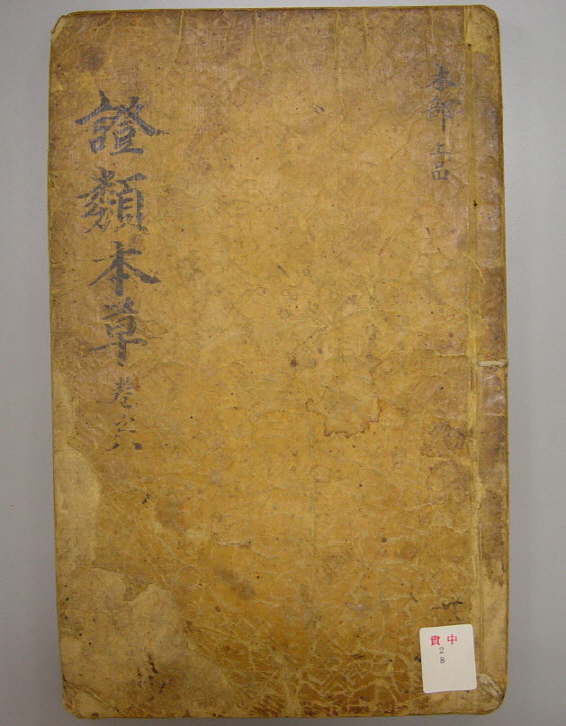 木部上品
證類本草 卷之六
貴 中
2
8